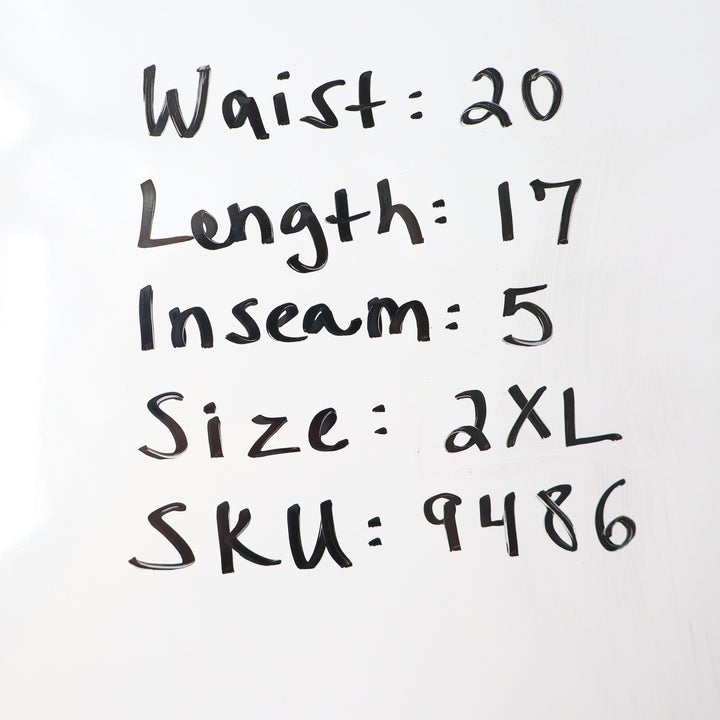 Waist: 20
Length: 17
Inseam: 5
Size: 2XL
SKU: 9486